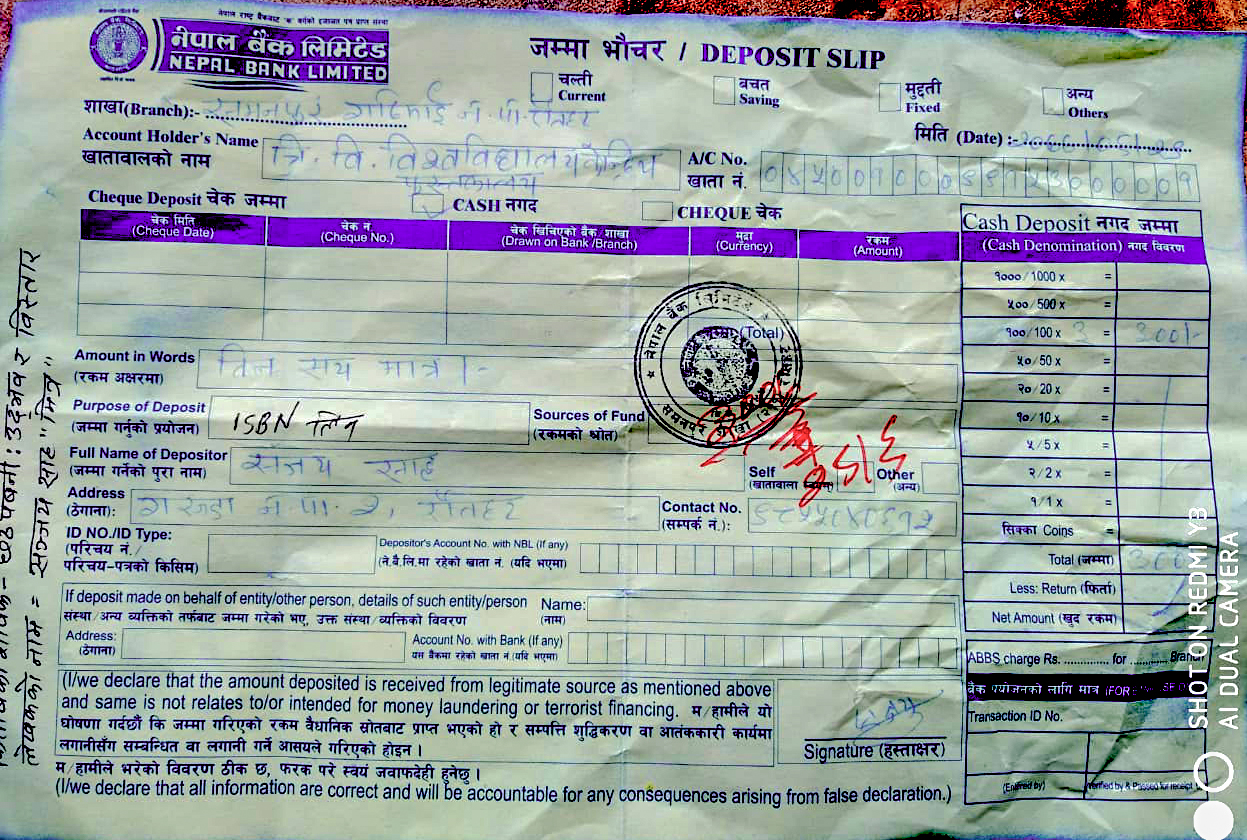 नेपाल राष्ट्र बैंकबाट "क" वर्गको इजाजत पत्र प्राप्त संस्था
नेपाल बैंक लिमिटेड
NEPAL BANK LIMITED
जम्मा भौचर / DEPOSIT SLIP
चल्ती Current
बचत Saving
मुद्दती Fixed
अन्य Others
शाखा(Branch):-
मिति (Date) :-
Account Holder's Name
खातावालको नाम
त्रि. वि. विश्वविद्यालय केन्द्रिय
पुस्तकालय
A/C No.
खाता नं.
Cheque Deposit चेक जम्मा
CASH नगद
CHEQUE चेक
चेक मिति (Cheque Date)
चेक नं. (Cheque No.)
चेक खिचिएको बैंक/ शाखा (Drawn on Bank /Branch)
मुद्रा (Currency)
रकम (Amount)
जम्मा (Total)
Cash Deposit नगद जम्मा
(Cash Denomination) नगद विवरण
१०००/1000 x =
५००/500 x =
१००/100 x ३ = 300/-
५०/50 x =
२०/20 x =
१०/10 x =
५/5x =
२/2 x =
१/1 x =
सिक्का Coins =
Total (जम्मा) 300
Less: Return (फिर्ता)
Net Amount (खुद रकम)
Amount in Words
(रकम अक्षरमा)
तिन सय मात्र ।-
Purpose of Deposit
(जम्मा गर्नुको प्रयोजन)
ISBN लिन
Sources of Fund
(रकमको श्रोत)
नेपाल बैंक लिमिटेड
Full Name of Depositor
(जम्मा गर्नेको पुरा नाम)
Self
(खातावाला स्वयम्)
Other
(अन्य)
Address
(ठेगाना):
Contact No.
(सम्पर्क नं.):
ID NO./ID Type:
(परिचय नं./
परिचय-पत्रको किसिम)
Depositor's Account No. with NBL (If any)
(ने.बै.लि.मा रहेको खाता नं. (यदि भएमा)
If deposit made on behalf of entity/other person, details of such entity/person
संस्था/अन्य व्यक्तिको तर्फबाट जम्मा गरेको भए, उक्त संस्था/व्यक्तिको विवरण
Name:
(नाम)
Address:
(ठेगाना)
Account No. with Bank (If any)
यस बैंकमा रहेको खाता नं.(यदि भएमा)
ABBS charge Rs. ............. for ........... Branch
बैंक प्रयोजनको लागि मात्र
Transaction ID No.
(Entired by)
Verified by & Passed for receipt
(I/we declare that the amount deposited is received from legitimate source as mentioned above
and same is not relates to/or intended for money laundering or terrorist financing. म/हामीले यो
घोषणा गर्दछौं कि जम्मा गरिएको रकम वैधानिक स्रोतबाट प्राप्त भएको हो र सम्पत्ति शुद्धिकरण वा आतंककारी कार्यमा
लगानीसँग सम्बन्धित वा लगानी गर्ने आसयले गरिएको होइन ।
Signature (हस्ताक्षर)
म/हामीले भरेको विवरण ठीक छ, फरक परे स्वयं जवाफदेही हुनेछु ।
(I/we declare that all information are correct and will be accountable for any consequences arising from false declaration.)
उद्भव र विस्तार
लेखकको नाम = सञ्जय साह "मित्र"
SHOT ON REDMI Y3
AI DUAL CAMERA